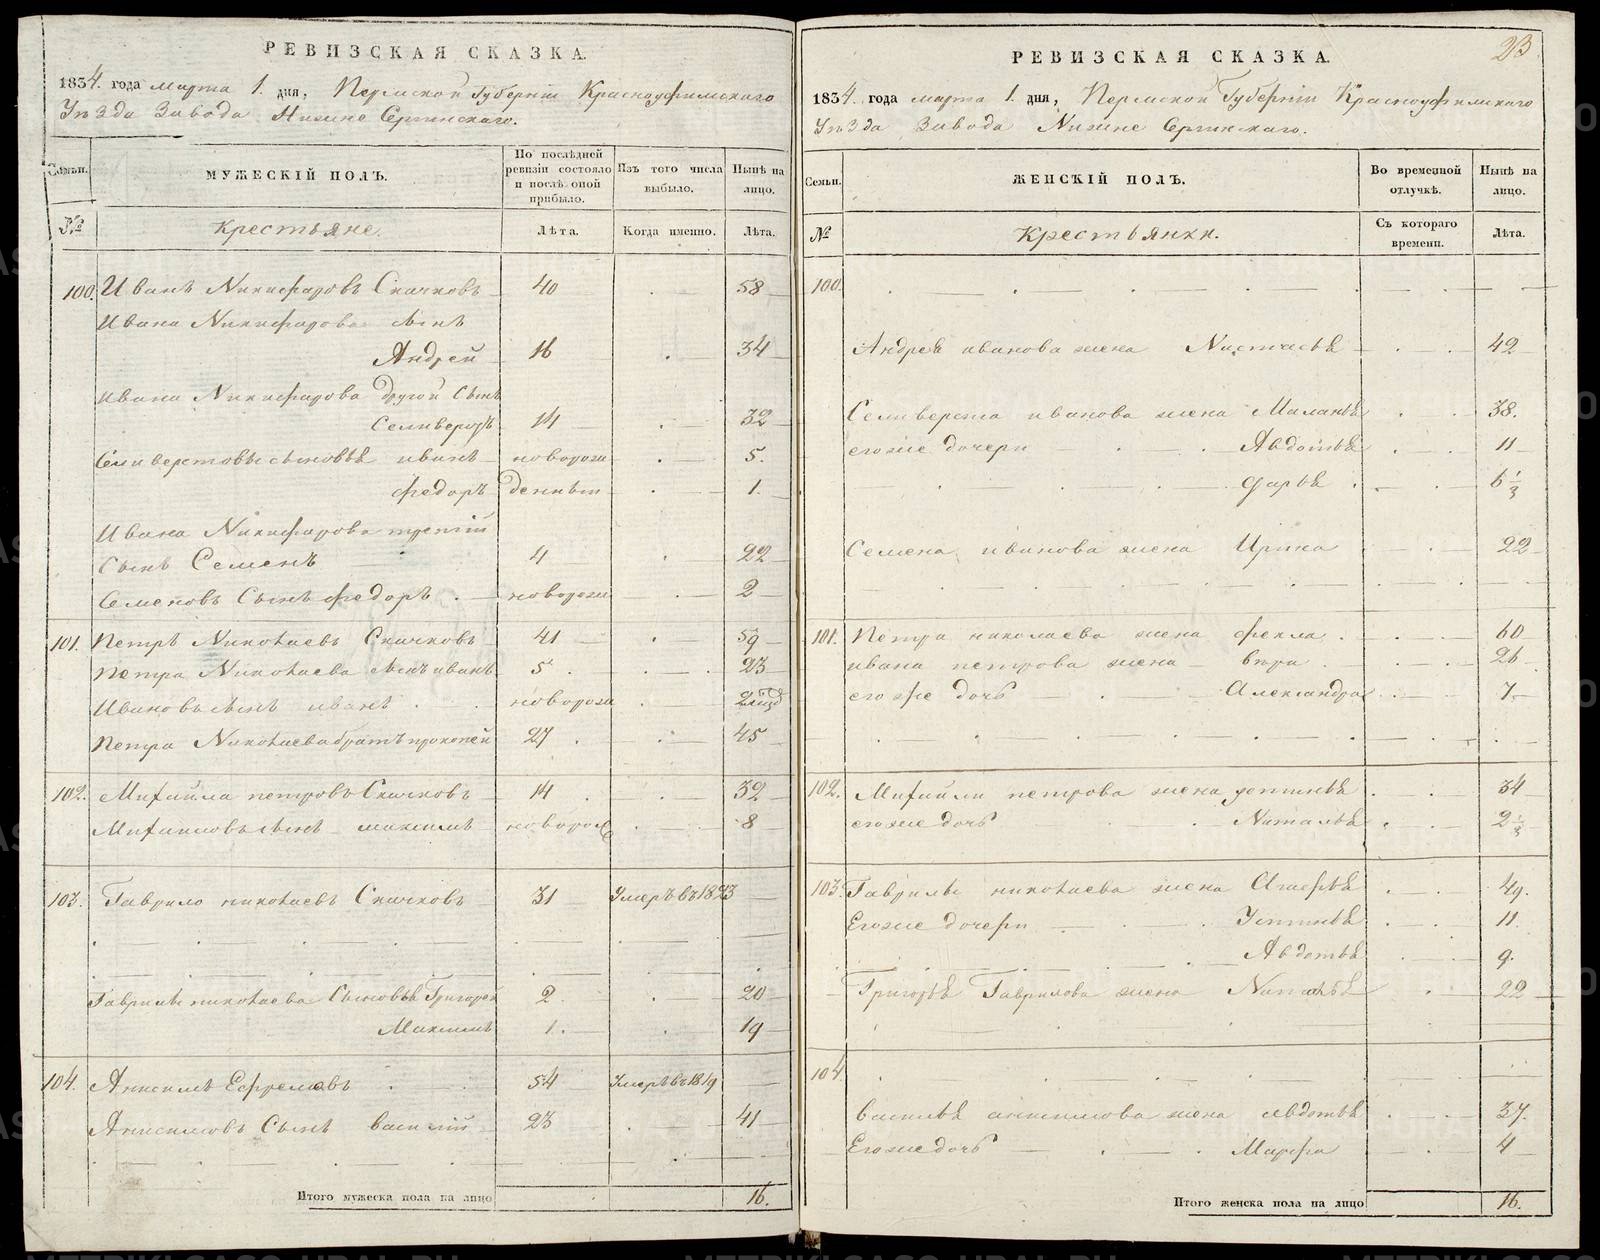 РЕВИЗСКАЯ СКАЗКА.
1834. года марта 1. дня, Пермской Губерніи Красноуфимскаго
Уѣзда Завода Нижне Сергинскаго.
Семьи. МУЖЕСКІЙ ПОЛЪ. По послѣдней ревизіи состояло и послѣ оной прибыло. Изъ того числа выбыло. Нынѣ на лицо.
№ Крестьяне. Лѣта. Когда именно. Лѣта.
100. Иванъ Никифоровъ Скачковъ 40 58
Ивана Никифорова сынъ
Андрей 16 34
Ивана Никифорова другой Сынъ
Селиверстъ 14 32
Селиверстовы сыновья иванъ новорож 5.
федоръ денныи 1.
Ивана Никифорова третій
Сынъ Семенъ 4 22
Семеновъ Сынъ федоръ новорож 2
101. Петръ Николаевъ Скачковъ 41 59
Петра Николаева сынъ иванъ 5 23
Ивановъ сынъ иванъ новорож
Петра Николаева братъ прокопей 27 45
102. Михайла петровъ Скачковъ 14 32
Михаиловъ сынъ максимъ новорож 8
103. Гаврило николаевъ Скачковъ 31 Умеръ въ 1823
Гаврилы николаева Сыновья Григорей 2 20
Максимъ 1. 19
104. Анисимъ Ефремовъ 54 Умеръ въ 1819
Анисимовъ Сынъ василій 23 41
Итого мужеска пола на лицо 16.
23
РЕВИЗСКАЯ СКАЗКА.
1834. года марта 1. дня, Пермской Губерніи Красноуфимскаго
Уѣзда Завода Нижне Сергинскаго.
Семьи. ЖЕНСКІЙ ПОЛЪ. Во временной отлучкѣ. Нынѣ на лицо.
№ Крестьянки. Съ котораго времени. Лѣта.
100.
Андрея иванова жена Настасья 42
Селиверста иванова жена Маланья 38.
егоже дочери Авдотья 11
дарья 6 1/3
Семена иванова жена Ирина 22
101. Петра николаева жена фекла 60
ивана петрова жена вера 26
егоже дочь Александра 7
102. Михайлы петрова жена устинья 34
егоже дочь Наталья 2 1/2
103. Гаврилы николаева жена Агафья 49.
Егоже дочери Устинья 11.
Авдотья 9.
Григорья Гаврилова жена Наталья 22
104.
василья анисимова жена авдотья 37.
Егоже дочь Марфа 4
Итого женска пола на лицо 16.
METRIKI.GASO-URAL.RU